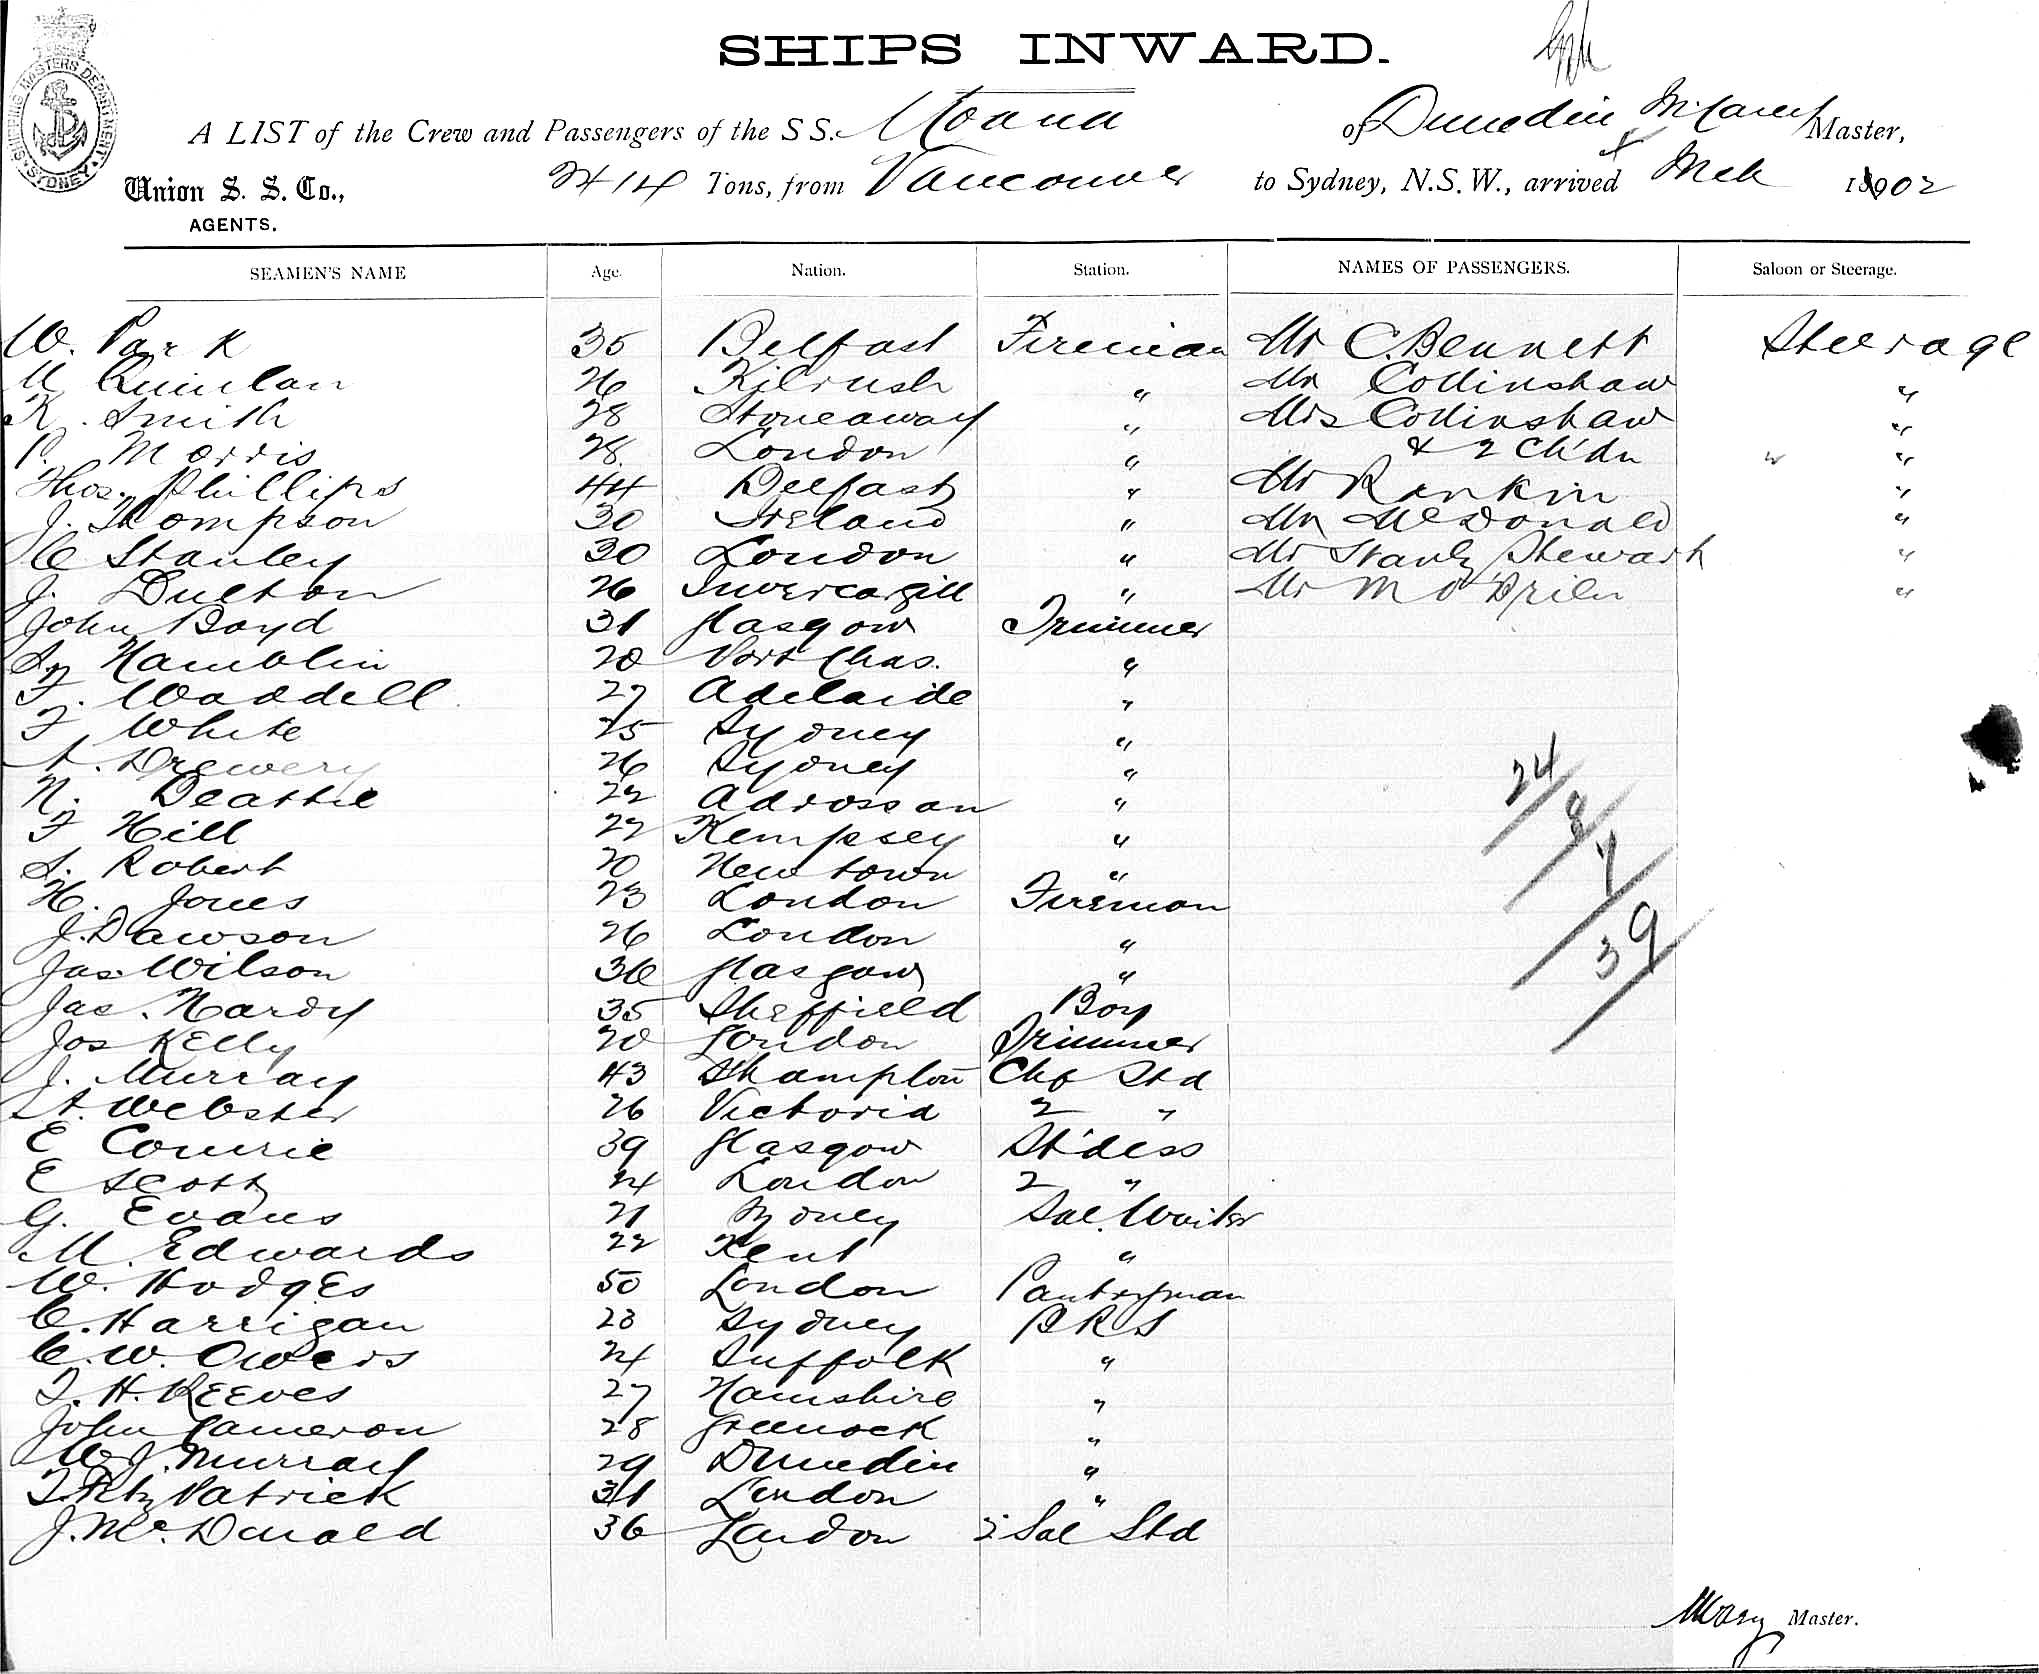 SHIPPING MASTERS DEPARTMENT SYDNEY
SHIPS INWARD.
A LIST of the Crew and Passengers of the SS. Moana of Dunedin Master,
Union S. S. Co., 2414 Tons, from Vancouver to Sydney, N.S.W., arrived 1902
AGENTS.
SEAMEN'S NAME Age. Nation. Station. NAMES OF PASSENGERS. Saloon or Steerage.
W. Park 35 Belfast Fireman Mr C. Bennett Steerage
M Quinlan 26 Kilrush " Mr Collinshaw "
R. Smith 28 Stoneaway " Mrs Collinshaw "
P. Morris 28 London " & 2 Ch'dn " "
Thos. Phillips 44 Belfast " Mr Rankin "
J. Thompson 30 Ireland " Mr McDonald "
C Stanley 30 London " Mr Stanly Stewart "
J. Dulton 26 Invercargill " Mr M O'Brien "
John Boyd 31 Glasgow Trimmer
Hamblin 20 Port Chas. "
F. Waddell 27 Adelaide "
F White 25 Sydney "
A. Drewery 26 Sydney "
N. Beattie 22 Adrossan "
F Hill 22 Kempsey "
S. Robert 20 Newtown "
H. Jones 23 London Fireman
J. Dawson 26 London "
Jas. Wilson 36 Glasgow "
Jas. Hardy 35 Sheffield Boy
Jos Kelly 20 London Trimmer
J. Murray 43 S'hampton Chf Std
A. Webster 26 Victoria 2 "
E Comrie 39 Glasgow St'dess
E Scott 24 London 2 "
G. Evans 21 Sydney Sal. Waiter
M. Edwards 22 Kent "
W. Hodges 50 London Pantryman
C. Harrigan 23 Sydney B R S
C. W. Owers 24 Suffolk "
T. H. Reeves 27 Hamshire "
John Cameron 28 Greenock "
W. J. Murray 29 Dunedin "
T. Fitz Patrick 31 London "
J. McDonald 36 London 2 Sal Std
24/
8/
7/
39/
Master.